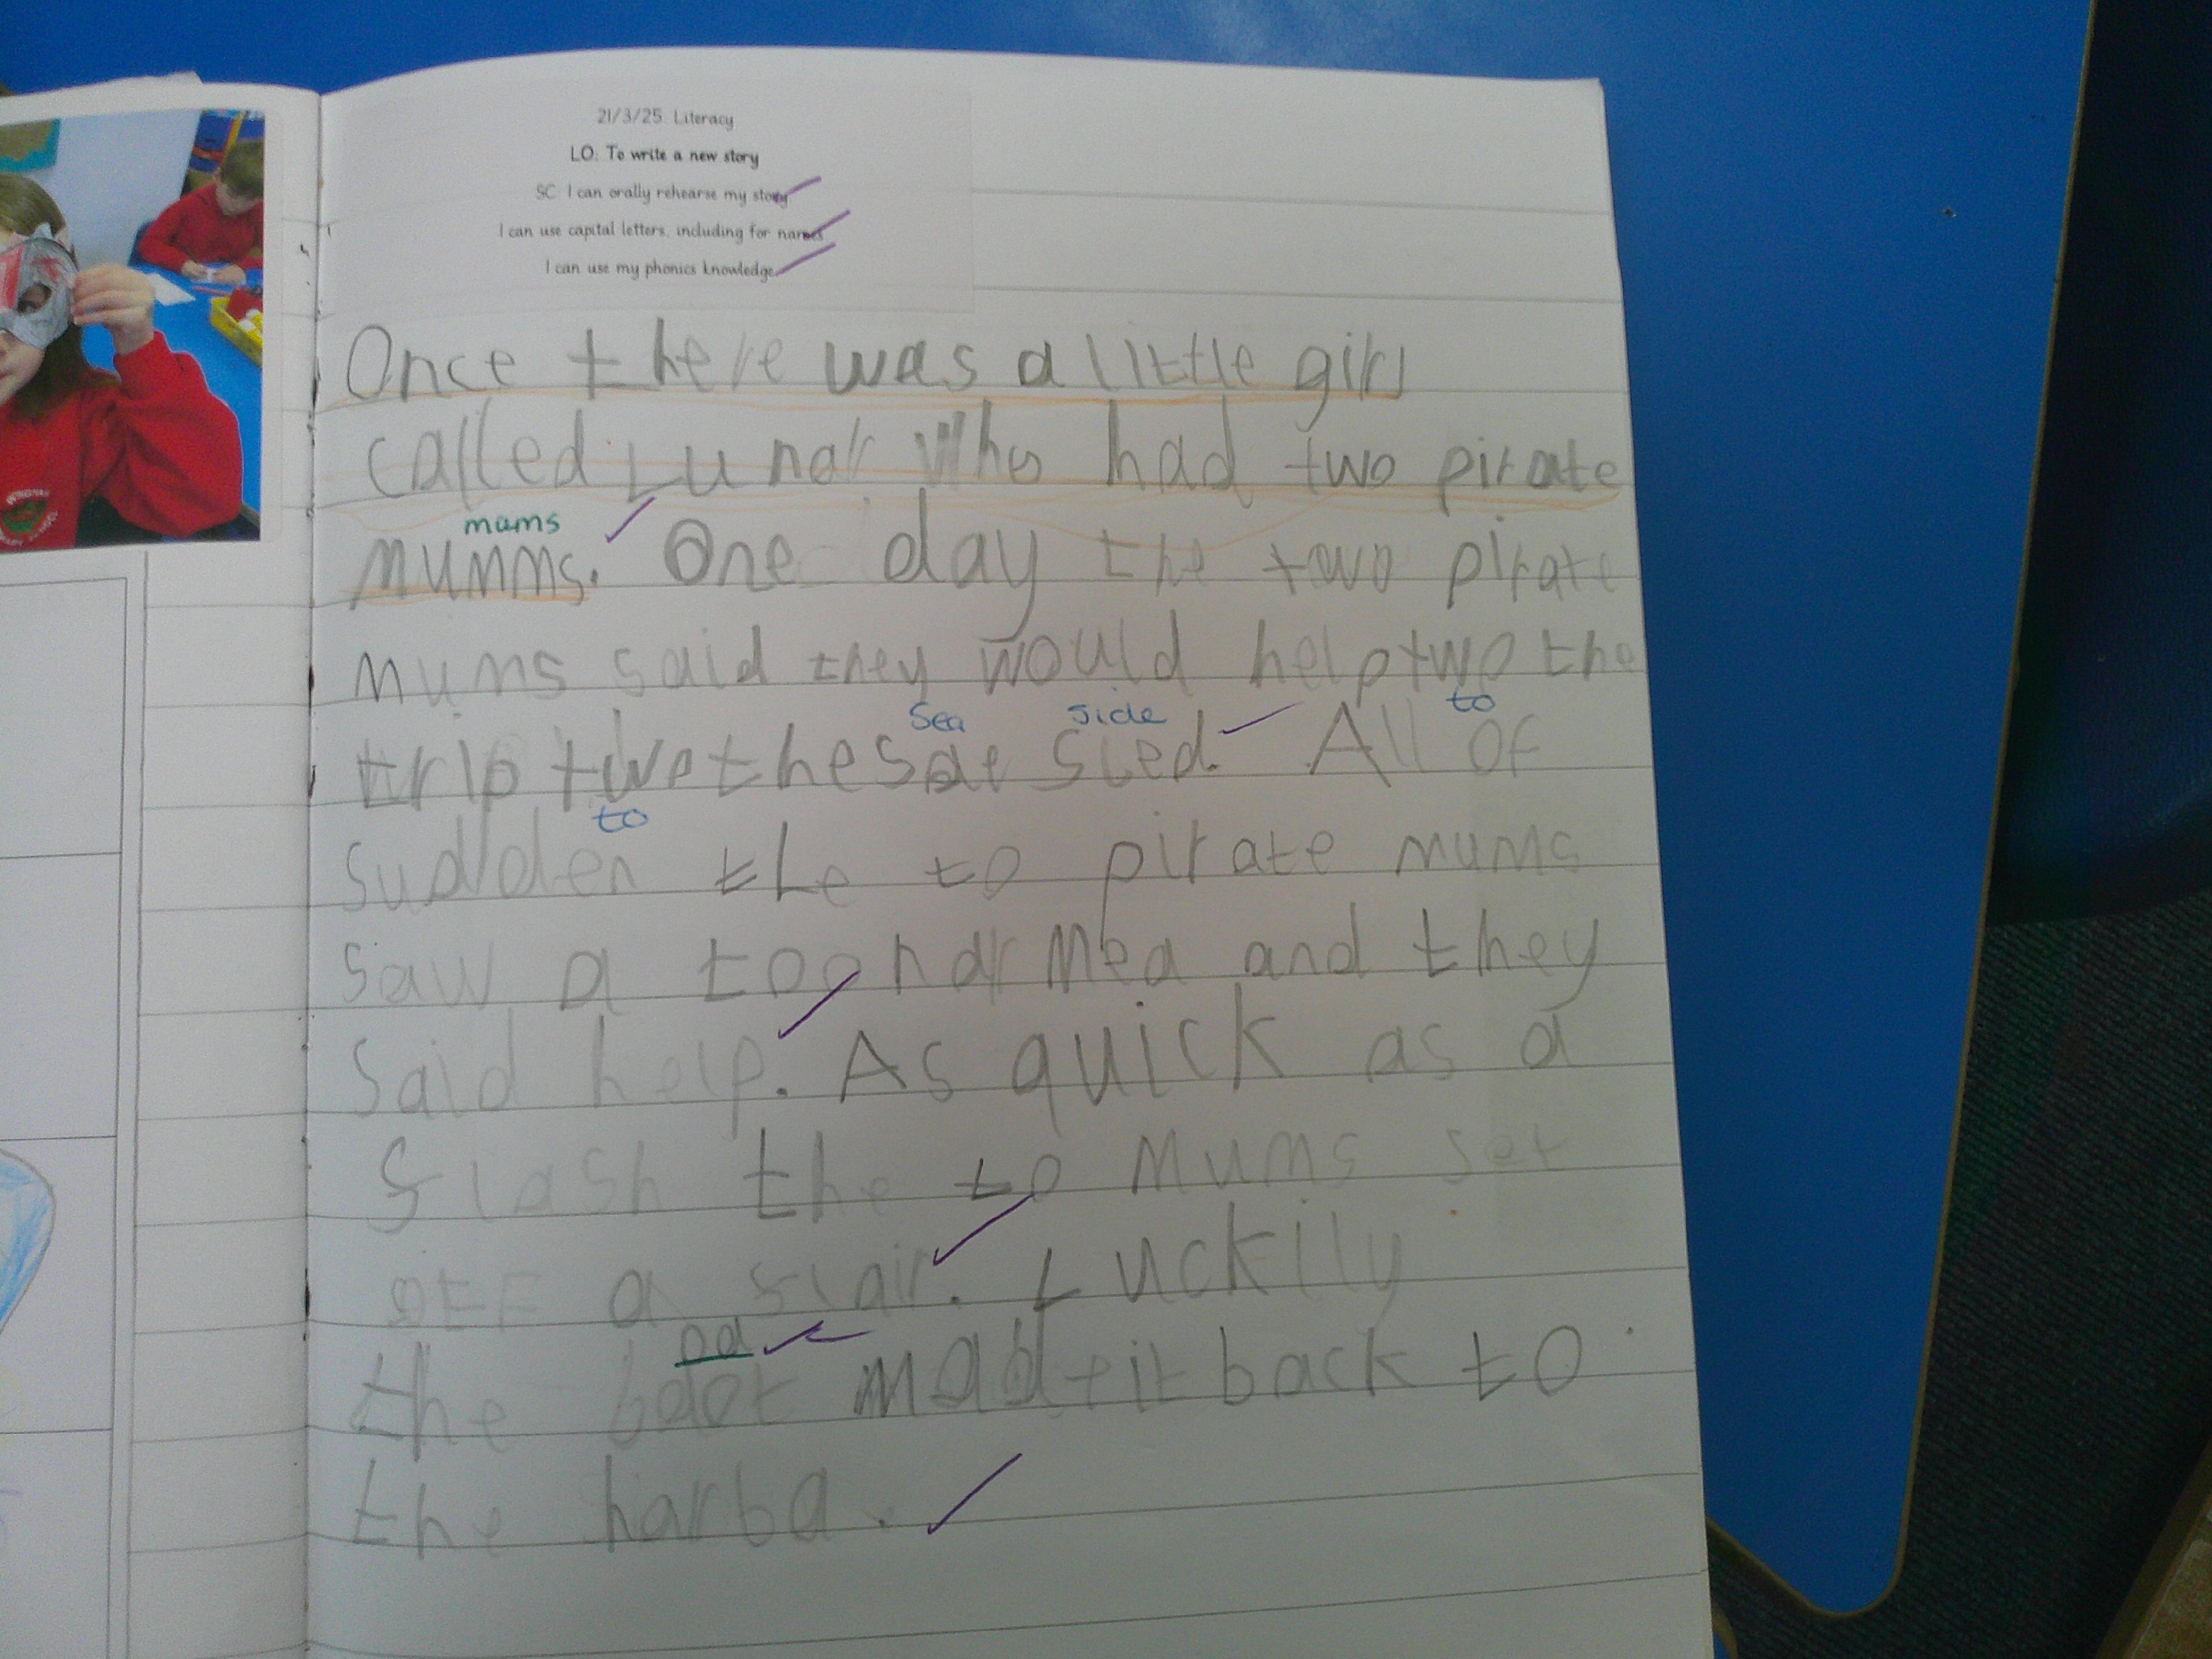 21/3/25. Literacy
LO: To write a new story
SC: I can orally rehearse my story
I can use capital letters, including for names
I can use my phonics knowledge
Once there was a little girl
called Lunar Who had two pirate
mams
mumms. One day the two pirate
mums said they would help two the
to
sea side
trip two the sae sied. All of
to
sudden the to pirate mums
saw a toonarmea and they
said help. As quick as a
flash the to mums set
off a flair. Luckily
oa
the boat made it back to
the harba.